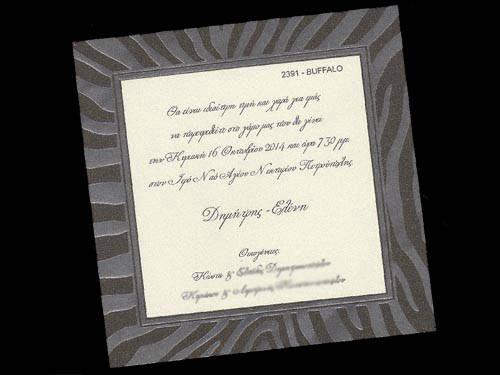 2391 - BUFFALO
Θα είναι ιδιαίτερη τιμή και χαρά για μας
να παρευρεθείτε στο γάμο μας που θα γίνει
την Κυριακή 16 Οκτωβρίου 2014 και ώρα 7.30 μμ.
στον Ιερό Ναό Αγίου Νεκταρίου Πετρούπολης
Δημήτρης - Ελένη
Οικογένειες
Κώστα &
&